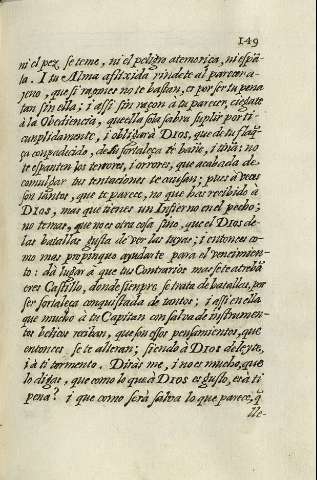 149
ni el pez se teme, ni el peligro atemoriça, ni espã-
ta. I tu Alma aflixida rindete al parecer a-
jeno, que si raçones no te bastan, es por ser tu pena
tan sin ella; i assi sin raçon à tu parecer, ciegate
à la Obediencia, que ella sola sabra suplir por ti
cunplidamente, i obligarà DIOS, que de tu flaq̃-
ça conpadecido, de su fortaleça te bañe, i tiña: no
te espanten los terrores, i orrores, que acabada de
comulgar tus tentaciones te causan; pues à veces
son tantos, que te parece, no que has recibido à
DIOS, mas que tienes un Infierno en el pecho;
no temas, que no es otra cosa sino, que el DIOS de
las batallas gusta de ver las tuyas; i entonces co-
mo mas propinquo ayudarte para el vencimien-
to: dà lugar à que tus Contrarios mas se atrebã
eres Castillo, donde sienpre se trata de batallas, por
ser fortaleça conquistada de tantos; i assi en ella
que mucho à tu Capitan con salva de instrumen-
tos belicos reciban, que son essos pensamientos, que
entonces se te alteran; siendo à DIOS deleyte,
i à ti tormento. Diràs me, i no es mucho, que
lo digas, que como lo que à DIOS es gusto, es à ti
pena? i que como serà salva lo que parece, q̃
lle-